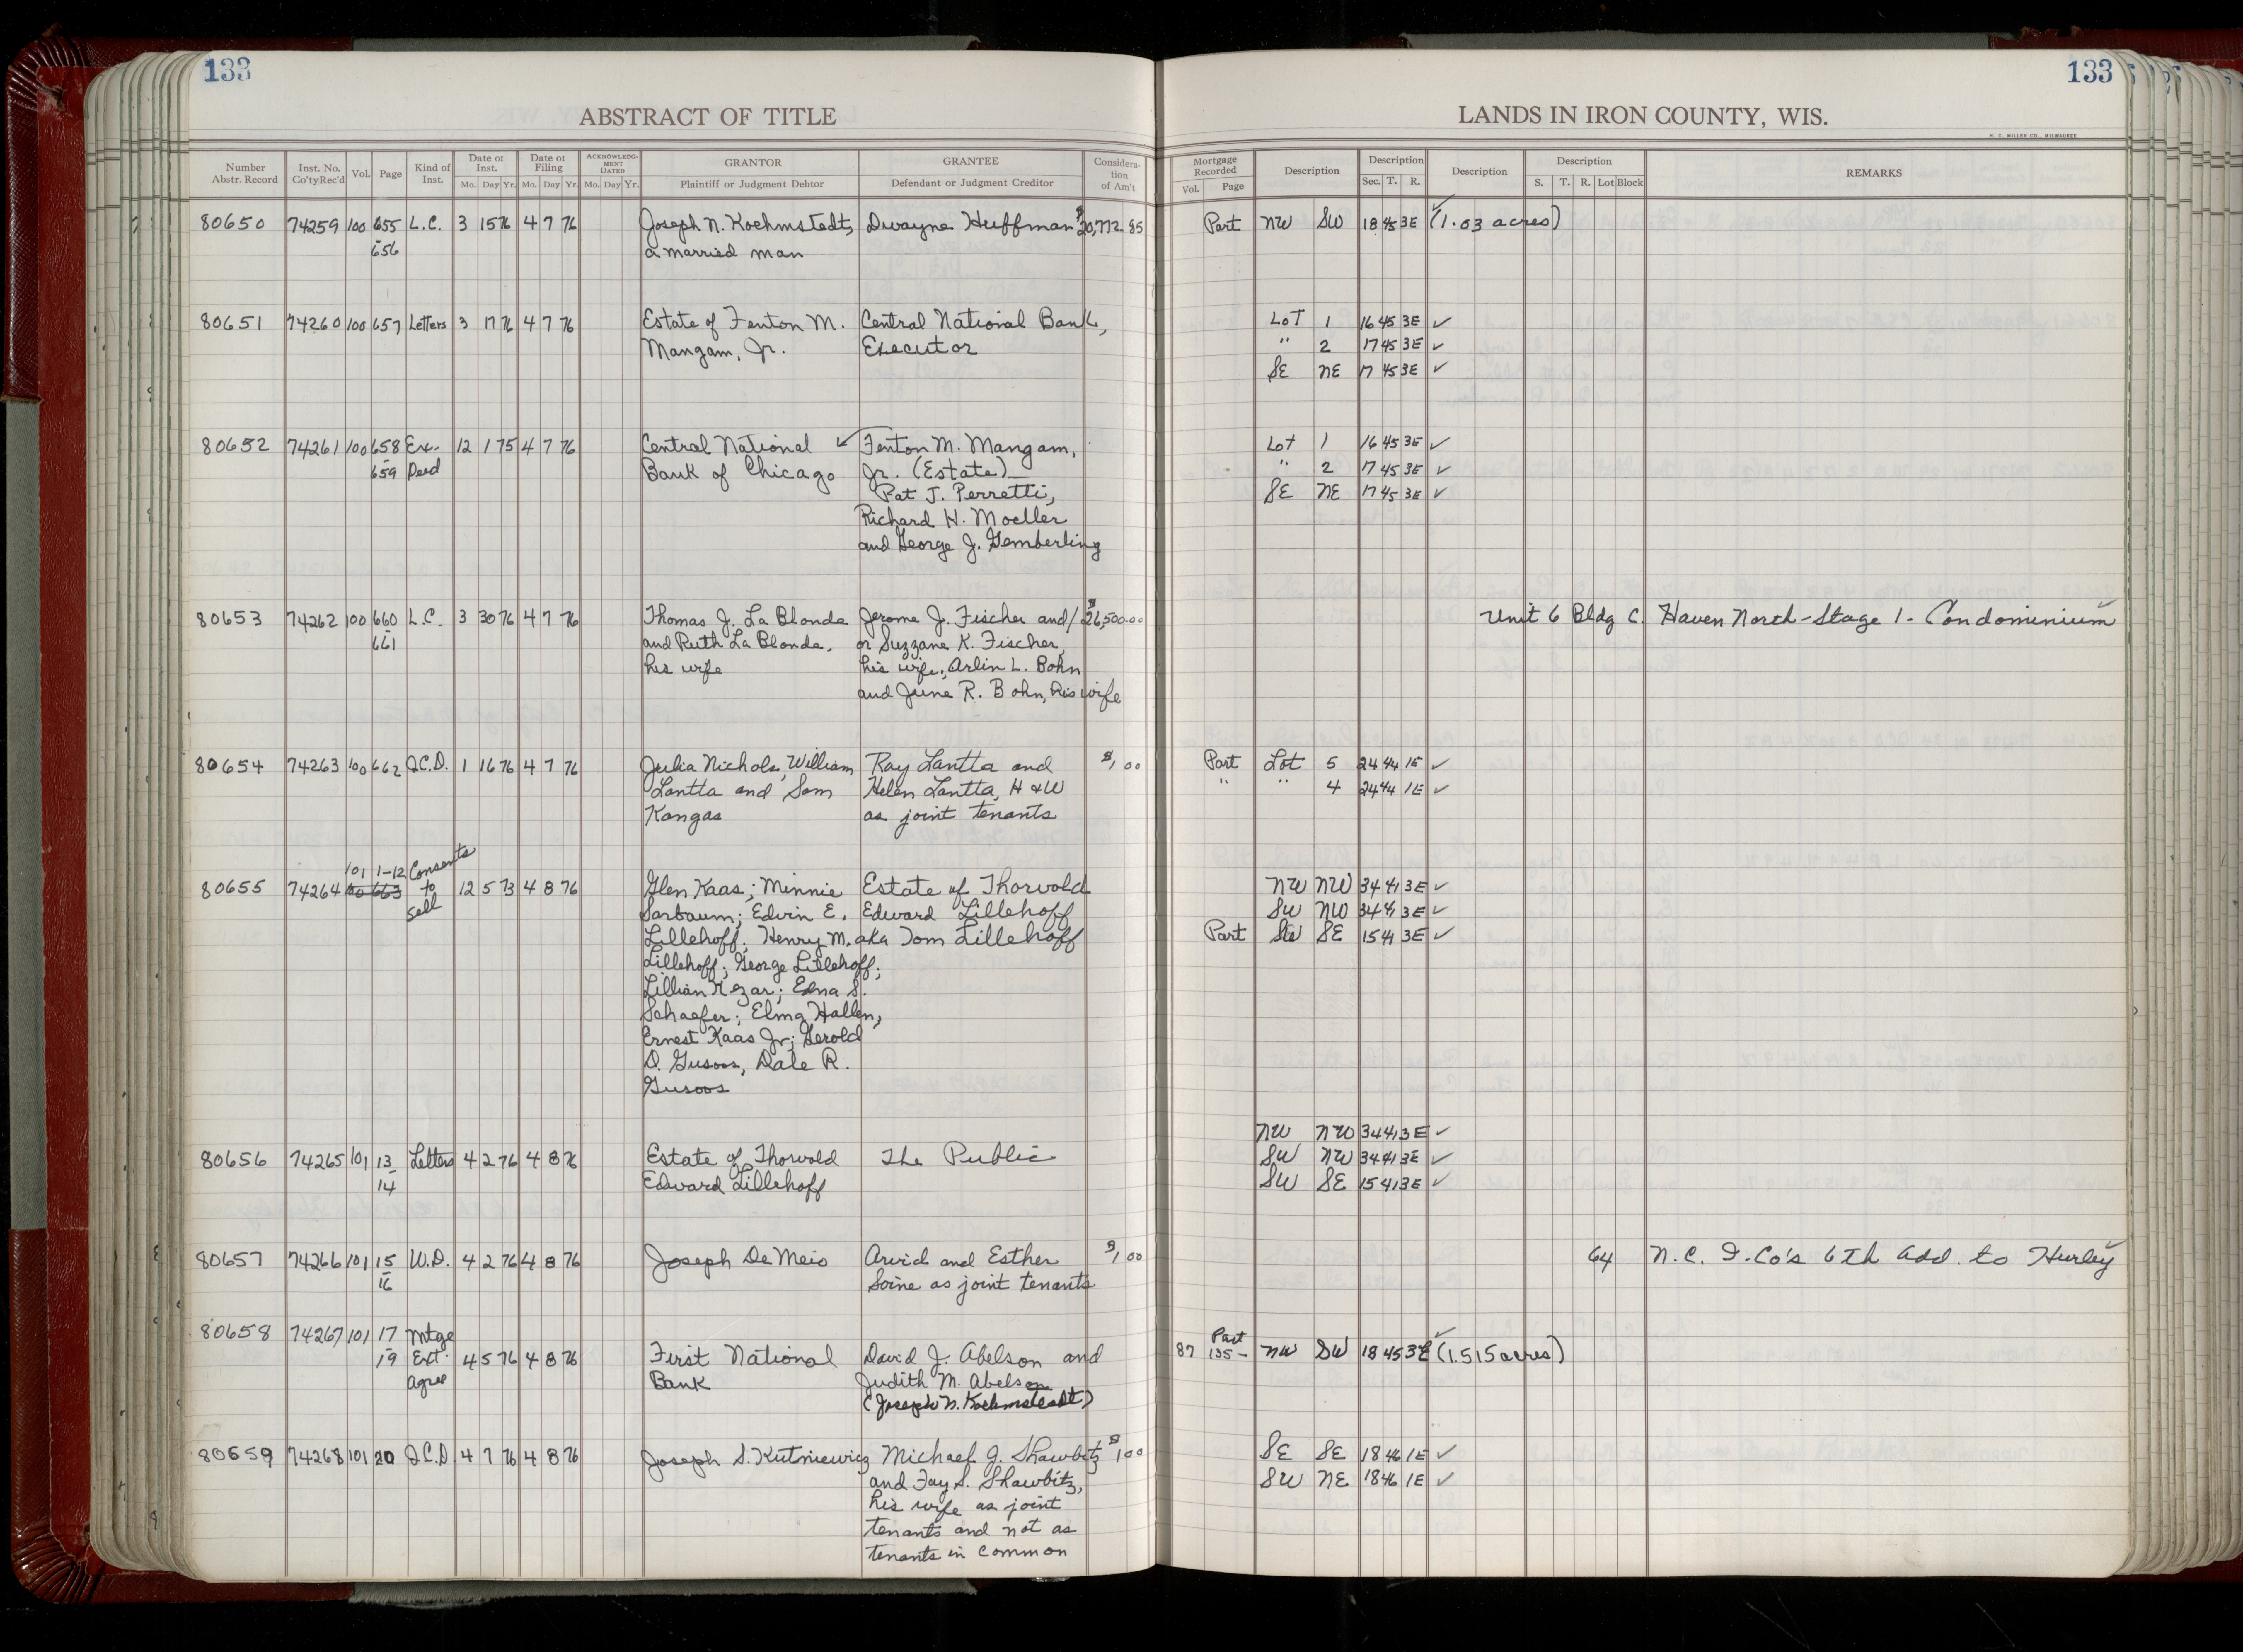 133
133
ABSTRACT OF TITLE
LANDS IN IRON COUNTY, WIS.
H. C. MILLER CO., MILWAUKEE
Number Abstr. Record
Inst. No. Co'ty Rec'd
Vol.
Page
Kind of Inst.
Date of Inst.
Mo. Day Yr.
Date of Filing
Mo. Day Yr.
ACKNOWLEDGMENT DATED
Mo. Day Yr.
GRANTOR
Plaintiff or Judgment Debtor
GRANTEE
Defendant or Judgment Creditor
Considera-
tion
of Am't
Mortgage Recorded
Vol. Page
Description
Description
Sec. T. R.
Description
Description
S. T. R. Lot Block
REMARKS
80650 74259 100 655 L.C. 3 15 76 4 7 76 Joseph N. Koehmstedt, Dwayne Huffman $20,772.85 Part NW SW 18 45 3E (1.03 acres)
656 a married man
80651 74260 100 657 Letters 3 17 76 4 7 76 Estate of Fenton M. Central National Bank, Lot 1 16 45 3E ✓
Mangam, Jr. Executor " 2 17 45 3E ✓
SE NE 17 45 3E ✓
80652 74261 100 658 Ex. 12 1 75 4 7 76 Central National Fenton M. Mangam, Lot 1 16 45 3E ✓
659 Deed Bank of Chicago Jr. (Estate) " 2 17 45 3E ✓
Pat J. Perretti, SE NE 17 45 3E ✓
Richard H. Moeller
and George J. Gemberling
80653 74262 100 660 L.C. 3 30 76 4 7 76 Thomas J. La Blonde Jerome J. Fischer and/ $26,500.00 Unit 6 Bldg C. Haven North - Stage 1 - Condominium
661 and Ruth La Blonde, or Suzzane K. Fischer,
his wife his wife, Arlin L. Bohn
and June R. Bohn, his wife
80654 74263 100 662 Q.C.D. 1 16 76 4 7 76 Julia Nichols, William Ray Lantta and $1.00 Part Lot 5 24 44 1E ✓
Lantta and Sam Helen Lantta, H & W " " 4 24 44 1E ✓
Kangas as joint tenants
101 1-12 Consents
80655 74264 100 663 to 12 5 73 4 8 76 Glen Kaas; Minnie Estate of Thorvold NW NW 34 41 3E ✓
sell Sorbaum; Edvin E. Edward Lillehoff SW NW 34 41 3E ✓
Lillehoff; Henry M. aka Tom Lillehoff Part SW SE 15 41 3E ✓
Lillehoff; George Lillehoff;
Lillian Rezar; Edna S.
Schaefer; Elma Hallen,
Ernest Kaas Jr; Gerold
D. Gusoos, Dale R.
Gusoos
NW NW 34 41 3E ✓
80656 74265 101 13 Letters 4 2 76 4 8 76 Estate of Thorvold The Public SW NW 34 41 3E ✓
14 Edward Lillehoff SW SE 15 41 3E ✓
80657 74266 101 15 W.D. 4 2 76 4 8 76 Joseph De Meio Arvid and Esther $1.00 64 N.C. I. Co's 6th Add. to Hurley
16 Soine as joint tenants
80658 74267 101 17 Mtge Part
19 Ext. 4 5 76 4 8 76 First National David J. Abelson and 87 135- NW SW 18 45 3E (1.515 acres)
Agree Bank Judith M. Abelson
(Joseph N. Koehmstedt)
80659 74268 101 20 Q.C.D 4 7 76 4 8 76 Joseph S. Kutniewicz Michael G. Shawbitz $1.00 SE SE 18 46 1E ✓
and Fay S. Shawbitz, SW NE 18 46 1E ✓
his wife as joint
tenants and not as
tenants in common